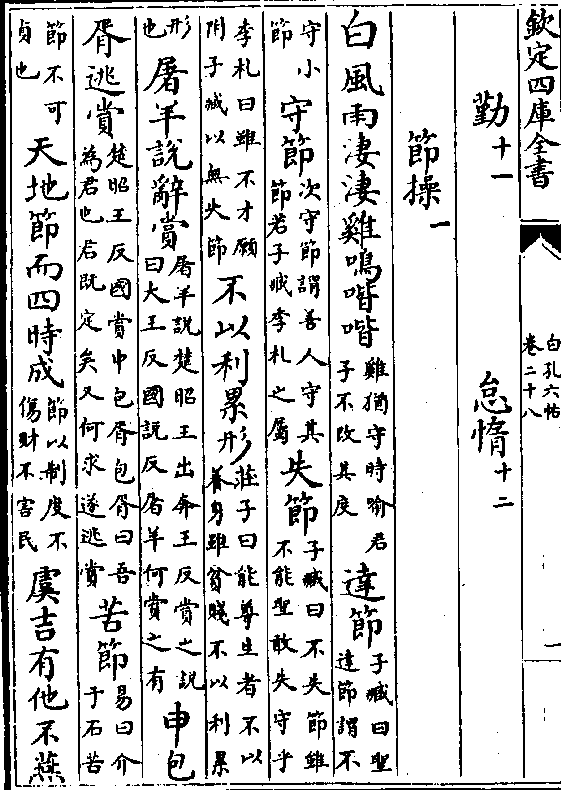 欽定四庫全書
白孔六帖
卷二十八
一
勤十一 怠惰十二
節操一
白風雨淒淒雞鳴喈喈 雞猶守時喻君子不改其度 達節 子臧曰聖達節謂不
守小節 守節 次守節謂善人守其節若子臧季札之屬 失節 子臧曰不失節雖不能聖敢失守乎
季札曰雖不才願附子臧以無失節 不以利累形 莊子曰能尊生者不以養身雖貧賤不以利累
形也 屠羊說辭賞 屠羊說楚昭王出奔王反賞之說曰大王反國說反屠羊何賞之有 申包
胥逃賞 楚昭王反國賞申包胥包胥曰吾為君也君既定矣又何求遂逃賞 苦節 易曰介于石苦
節不可貞也 天地節而四時成 節以制度不傷財不害民 虞吉有他不燕